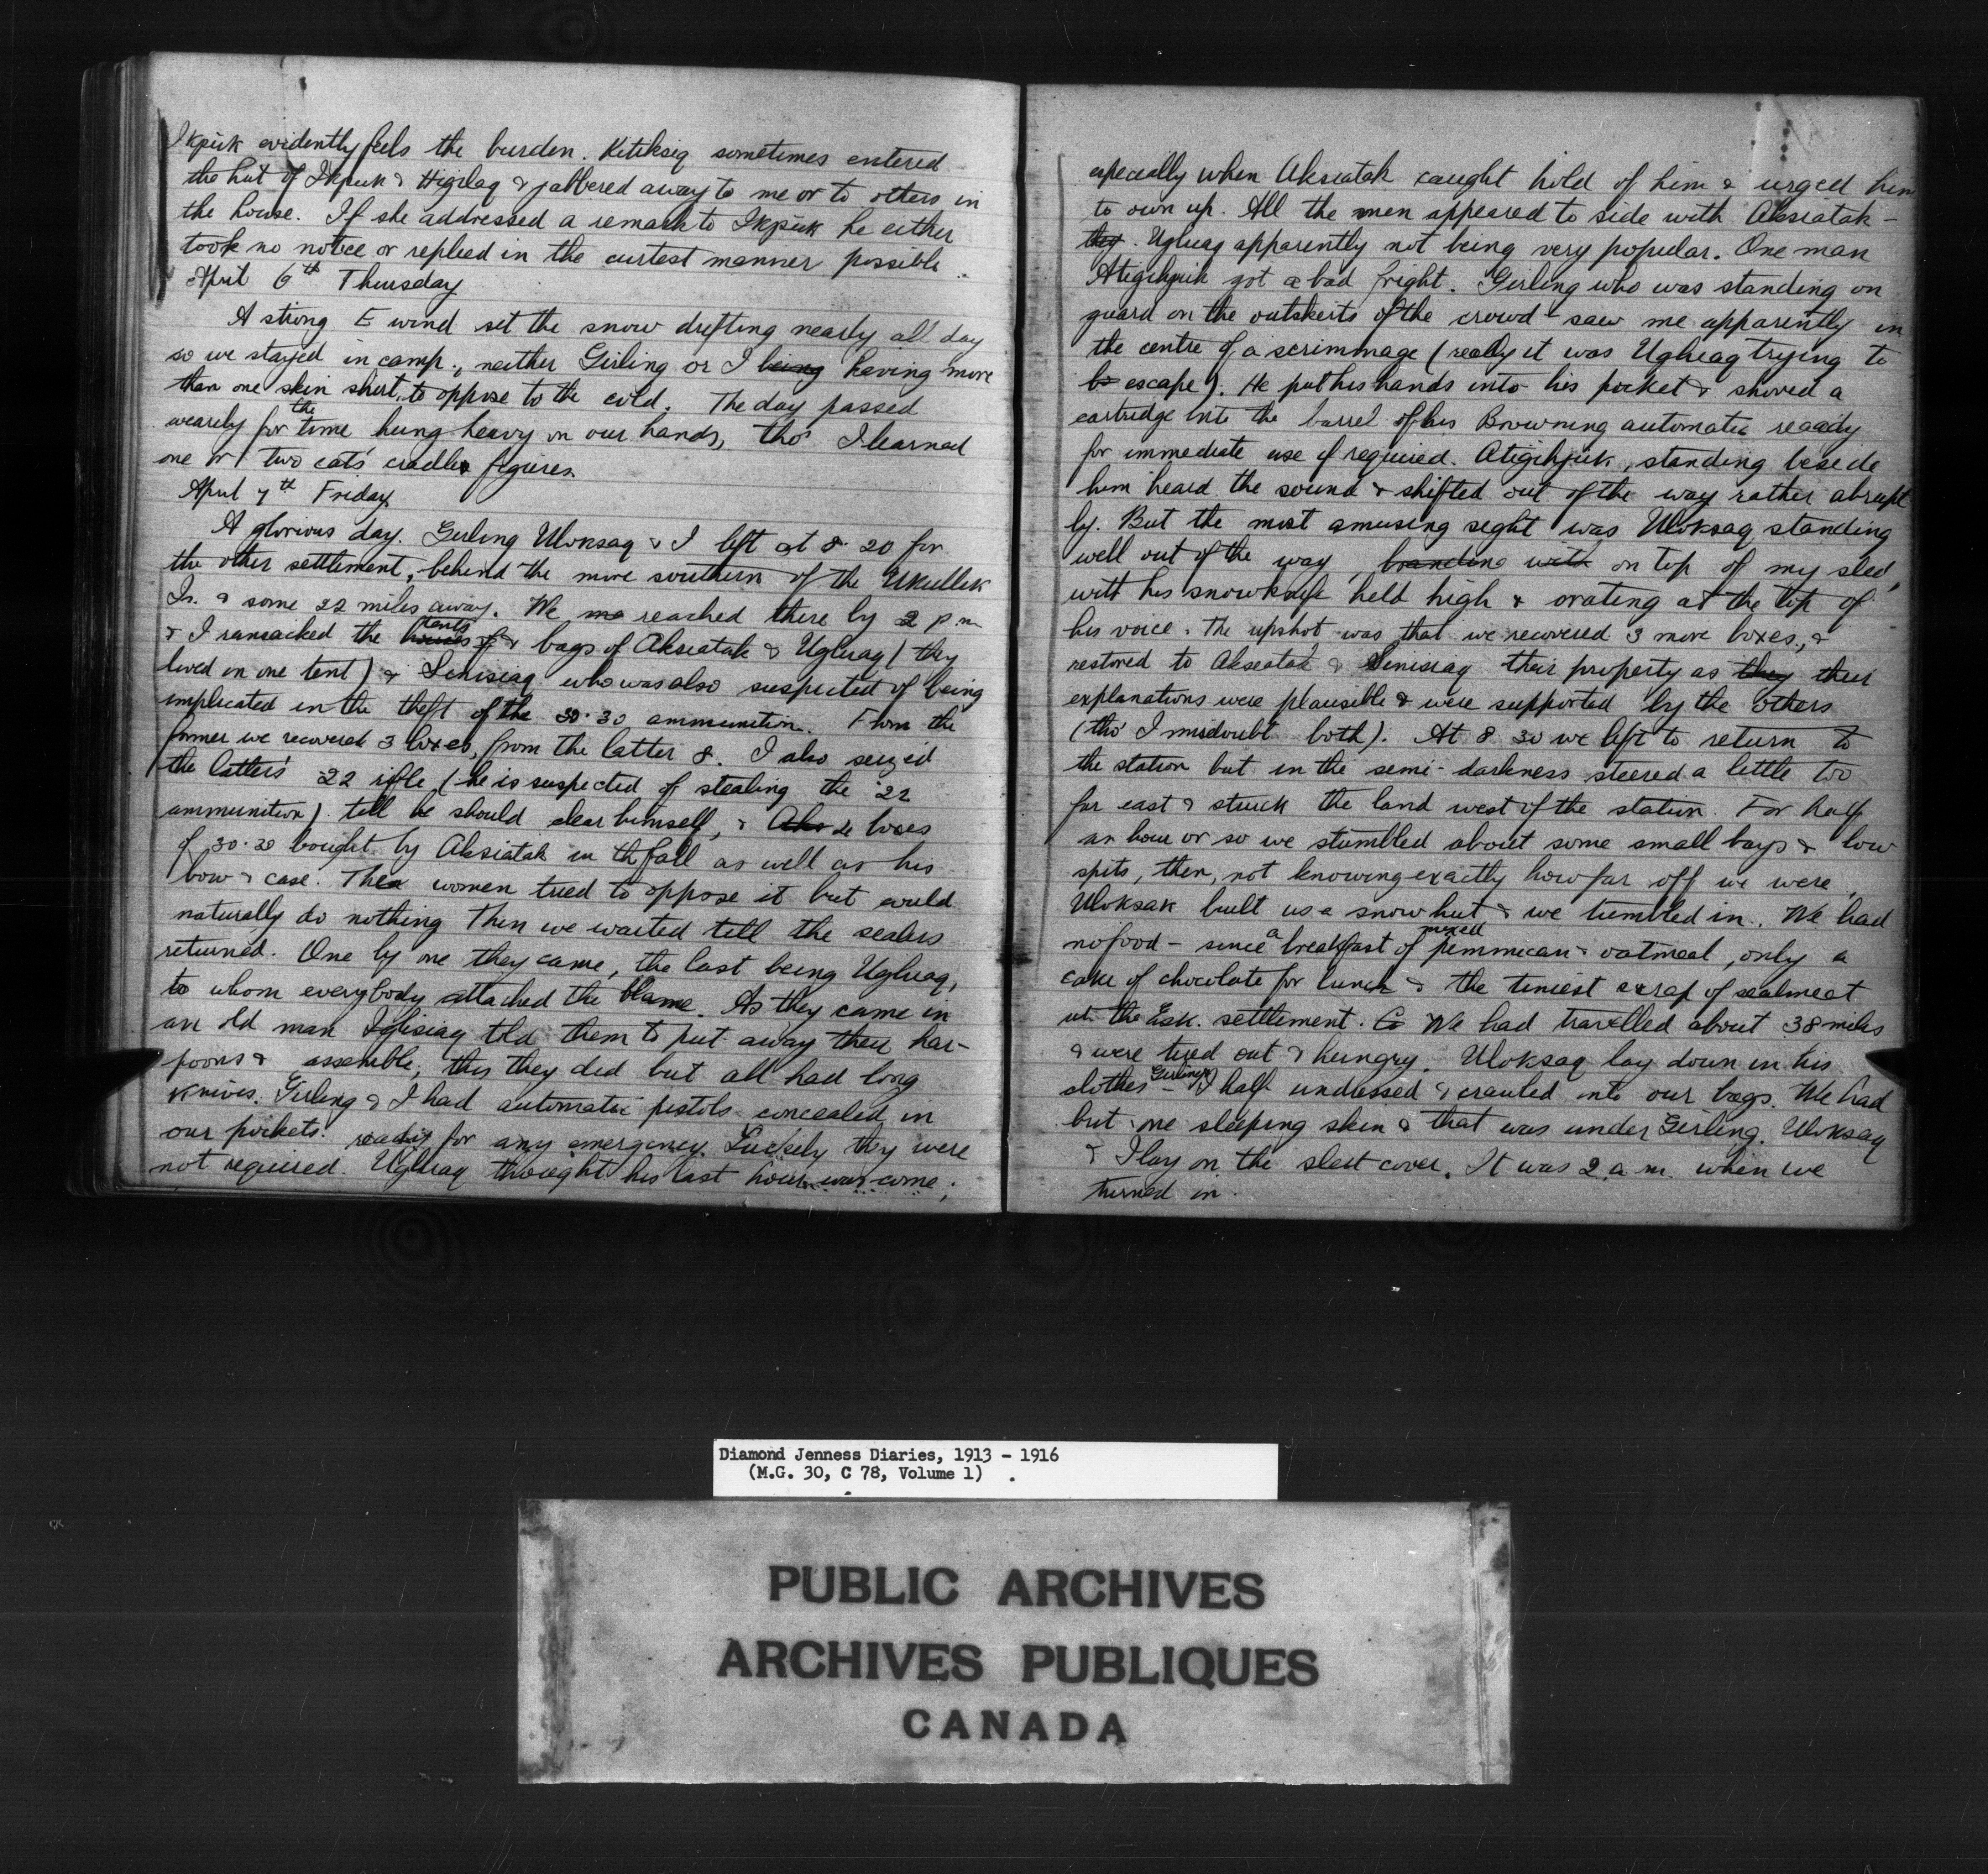 Ikpuk evidently feels the burden. Kitiksiq sometimes entered
the hut of Ikpuk & Higilaq & jabbered away to me or to others in
the house. If she addressed a remark to Ikpuk he either
took no notice or replied in the curtest manner possible.
April 6th Thursday
A strong E wind set the snow drifting nearly all day
so we stayed in camp, neither Girling or I being having more
than one skin shirt to oppose to the cold. The day passed
wearily for the time hung heavy on our hands, tho' I learned
one or two cat's cradle figures.
April 7th Friday
A glorious day. Girling Uloksaq & I left at 8.20 for
the other settlement, behind the more southern of the Ukullik
Is. & some 22 miles away. We reached there by 2 p.m
& I ransacked the houses of tents & bags of Aksiatak & Ugluaq (they
lived in one tent) & Sinisiaq who was also suspected of being
implicated in the theft of the 30.30 ammunition. From the
former we recovered 3 boxes, from the latter 8. I also seized
the latter's 22 rifle (he is suspected of stealing the 22
ammunition) till he should clear himself, & 2 boxes
of 30.30 bought by Aksiatak in th fall as well as his
bow & case. The women tried to oppose it but could
naturally do nothing Then we waited till the sealers
returned. One by one they came, the last being Ugluaq,
to whom everybody attached the blame. As they came in
an old man Iglisiaq told them to put away their har-
poons & assemble; this they did but all had long
knives. Girling & I had automatic pistols concealed in
our pockets. ready for any emergency. Luckily they were
not required. Ugluaq thought his last hour was come;
especially when Aksiatak caught hold of him & urged him
to own up. All the men appeared to side with Aksiatak –
they. Ugluaq apparently not being very popular. One man
Atigihjuk got a bad fright. Girling who was standing on
guard on the outskirts of the crowd saw me apparently in
the centre of a scrimmage (really it was Ugluaq trying to
escape). He put his hands into his pocket & shoved a
cartridge into the barrel of his Browning automatic ready
for immediate use if required. Atigihjuk, standing beside
him heard the sound & shifted out of the way rather abrupt
ly. But the most amusing sight was Uloksaq standing
well out of the way, standing with on top of my sled,
with his snowknife held high & orating at the top of
his voice. The upshot was that we recovered 3 more boxes, &
restored to Aksiatak & Sinisiaq their property as they their
explanations were plausible & were supported by the others
(tho' I misdoubt both). At 8 30 we left to return to
the station but in the semi-darkness steered a little too
far east & struck the land west of the station. For half
an hour or so we stumbled about some small bays & low
spits, then, not knowing exactly how far off we were,
Uloksak built us a snow hut & we tumbled in. We had
no food – since a breakfast of mixed pemmican & oatmeal, only a
cake of chocolate for lunch & the tiniest scrap of sealmeat
at the Esk. settlement. We had travelled about 38 miles
& were tired out & hungry. Uloksaq lay down in his
clothes – Girling & I half undressed & crawled into our bags. We had
but one sleeping skin & that was under Girling. Uloksaq
& I lay on the sled cover. It was 2 a.m. when we
turned in.
Diamond Jenness Diaries, 1913 - 1916
(M.G. 30, C 78, Volume 1)
PUBLIC ARCHIVES
ARCHIVES PUBLIQUES
CANADA